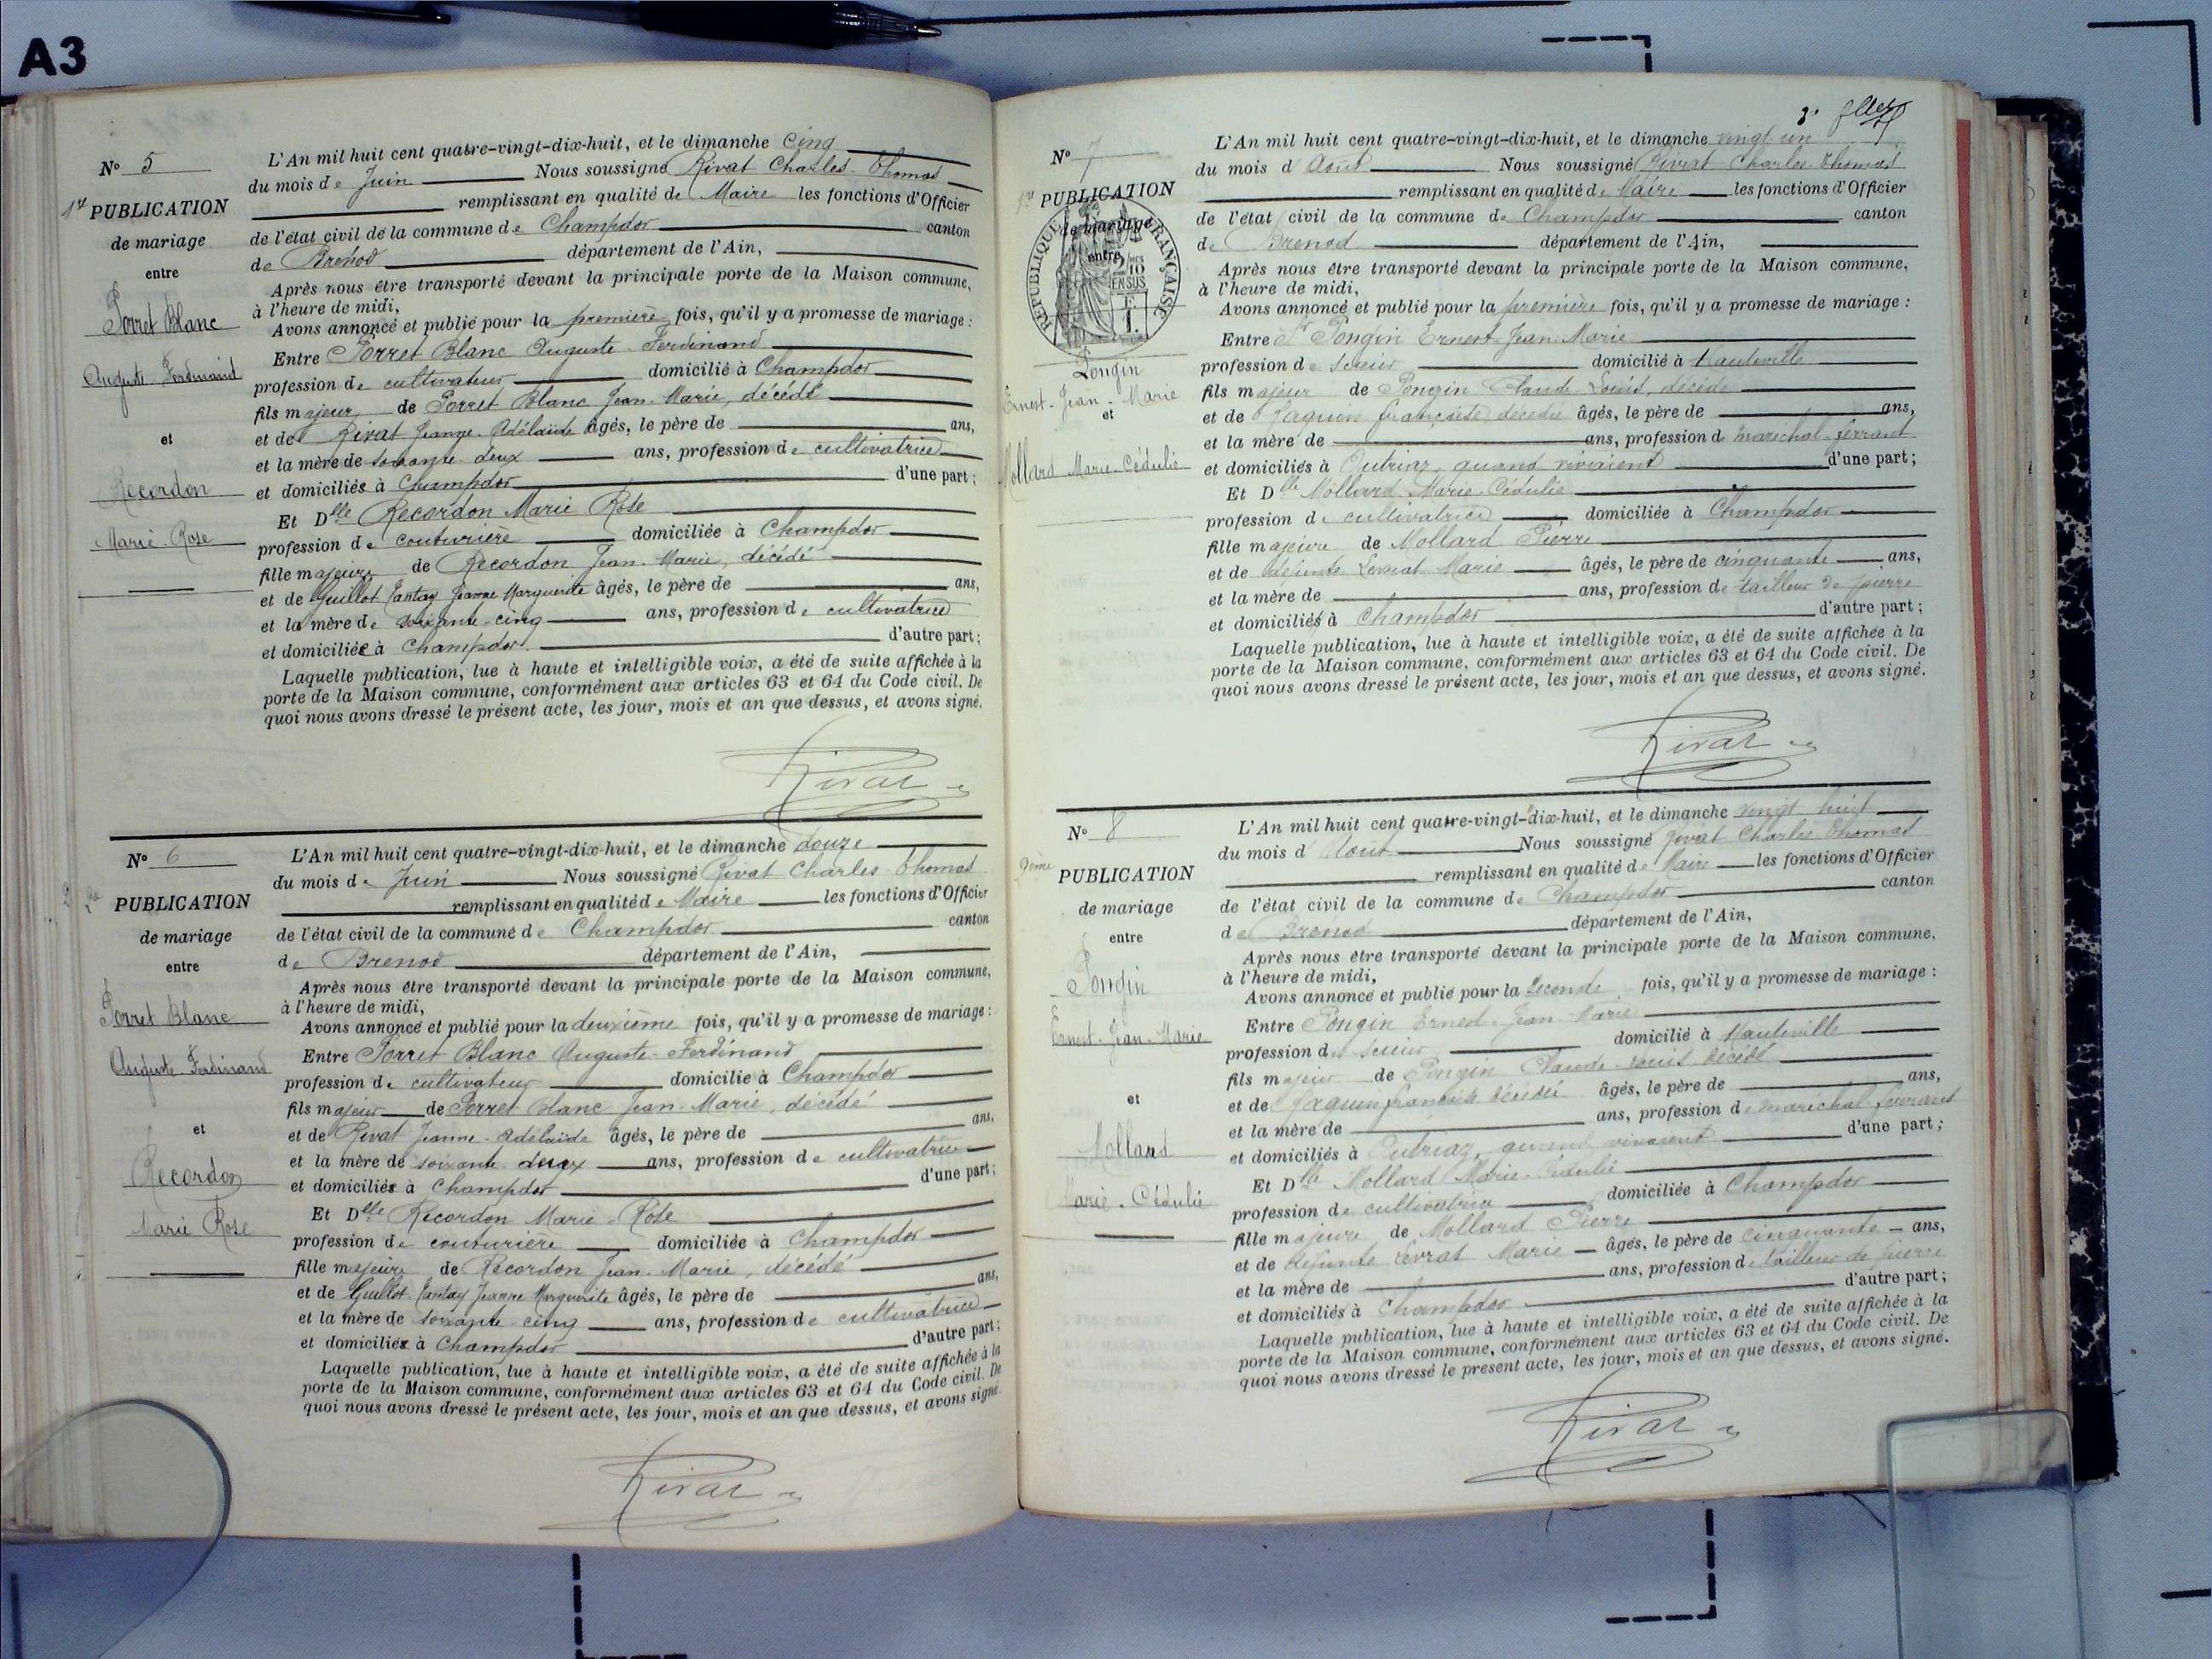 A3
N° 5
1re PUBLICATION
de mariage
entre
Porret Blanc
Auguste Ferdinand
et
Recordon
Marie-Rose
L'An mil huit cent quatre-vingt-dix-huit, et le dimanche cinq
du mois de Juin Nous soussigné Rivat Charles-Thomas
remplissant en qualité de Maire les fonctions d'Officier
de l'état civil de la commune de Champdor canton
de Brénod département de l'Ain,
Après nous être transporté devant la principale porte de la Maison commune,
à l'heure de midi,
Avons annoncé et publié pour la première fois, qu'il y a promesse de mariage :
Entre Porret Blanc Auguste-Ferdinand
profession de cultivateur domicilié à Champdor
fils majeur de Porret Blanc Jean-Marie, décédé
et de Rivat Jeanne-Adélaïde âgés, le père de ans,
et la mère de soixante-deux ans, profession de cultivatrice
et domiciliés à Champdor d'une part ;
Et Dlle Recordon Marie Rose
profession de couturière domiciliée à Champdor
fille majeure de Recordon Jean-Marie, décédé
et de Guillot Jeanne Marguerite âgés, le père de ans,
et la mère de soixante-cinq ans, profession de cultivatrice
et domiciliée à Champdor d'autre part ;
Laquelle publication, lue à haute et intelligible voix, a été de suite affichée à la
porte de la Maison commune, conformément aux articles 63 et 64 du Code civil. De
quoi nous avons dressé le présent acte, les jour, mois et an que dessus, et avons signé.
Rivat
N° 6
PUBLICATION
de mariage
entre
Porret Blanc
Auguste-Ferdinand
et
Recordon
Marie Rose
L'An mil huit cent quatre-vingt-dix-huit, et le dimanche douze
du mois de Juin Nous soussigné Rivat Charles-Thomas
remplissant en qualité de Maire les fonctions d'Officier
de l'état civil de la commune de Champdor canton
de Brenod département de l'Ain,
Après nous être transporté devant la principale porte de la Maison commune,
à l'heure de midi,
Avons annoncé et publié pour la deuxième fois, qu'il y a promesse de mariage :
Entre Porret Blanc Auguste-Ferdinand
profession de cultivateur domicilié à Champdor
fils majeur de Porret Blanc Jean-Marie, décédé
et de Rivat Jeanne-Adélaïde âgés, le père de ans,
et la mère de soixante-deux ans, profession de cultivatrice
et domiciliés à Champdor d'une part ;
Et Dlle Recordon Marie-Rose
profession de couturière domiciliée à Champdor
fille majeure de Recordon Jean-Marie, décédé
et de Guillot Jeanne Marguerite âgés, le père de ans,
et la mère de soixante-cinq ans, profession de cultivatrice
et domiciliés à Champdor d'autre part ;
Laquelle publication, lue à haute et intelligible voix, a été de suite affichée à la
porte de la Maison commune, conformément aux articles 63 et 64 du Code civil. De
quoi nous avons dressé le présent acte, les jour, mois et an que dessus, et avons signé.
Rivat
N° 7
1re PUBLICATION
de mariage
entre
RÉPUBLIQUE FRANÇAISE
2/10 EN SUS
Pongin
Ernest-Jean-Marie
et
Mollard Marie-Cédulie
L'An mil huit cent quatre-vingt-dix-huit, et le dimanche vingt un
du mois d'Août Nous soussigné Rivat Charles-Thomas
remplissant en qualité de Maire les fonctions d'Officier
de l'état civil de la commune de Champdor canton
de Brenod département de l'Ain,
Après nous être transporté devant la principale porte de la Maison commune,
à l'heure de midi,
Avons annoncé et publié pour la première fois, qu'il y a promesse de mariage :
Entre Pongin Ernest-Jean-Marie
profession de scieur domicilié à Hauteville
fils majeur de Pongin Claude-Louis, décédé
et de Jaquin Françoise décédée âgés, le père de ans,
et la mère de ans, profession de maréchal-ferrant
et domiciliés à Outriaz, quand vivaient d'une part ;
Et Dlle Mollard Marie-Cédulie
profession de cultivatrice domiciliée à Champdor
fille majeure de Mollard Pierre
et de défunte Levrat Marie âgés, le père de cinquante ans,
et la mère de ans, profession de tailleur de pierre
et domiciliés à Champdor d'autre part ;
Laquelle publication, lue à haute et intelligible voix, a été de suite affichée à la
porte de la Maison commune, conformément aux articles 63 et 64 du Code civil. De
quoi nous avons dressé le présent acte, les jour, mois et an que dessus, et avons signé.
Rivat
N° 8
2ème PUBLICATION
de mariage
entre
Pongin
Ernest-Jean-Marie
et
Mollard
Marie-Cédulie
L'An mil huit cent quatre-vingt-dix-huit, et le dimanche vingt huit
du mois d'Août Nous soussigné Rivat Charles Thomas
remplissant en qualité de Maire les fonctions d'Officier
de l'état civil de la commune de Champdor canton
de Brénod département de l'Ain,
Après nous être transporté devant la principale porte de la Maison commune,
à l'heure de midi,
Avons annoncé et publié pour la seconde fois, qu'il y a promesse de mariage :
Entre Pongin Ernest-Jean-Marie
profession de scieur domicilié à Hauteville
fils majeur de Pongin Claude-Louis décédé
et de Jaquin Françoise décédée âgés, le père de ans,
et la mère de ans, profession de maréchal ferrant
et domiciliés à Outriaz, quand vivaient d'une part ;
Et Dlle Mollard Marie-Cédulie
profession de cultivatrice domiciliée à Champdor
fille majeure de Mollard Pierre
et de défunte Levrat Marie âgés, le père de cinquante ans,
et la mère de ans, profession de tailleur de pierre
et domiciliés à Champdor d'autre part ;
Laquelle publication, lue à haute et intelligible voix, a été de suite affichée à la
porte de la Maison commune, conformément aux articles 63 et 64 du Code civil. De
quoi nous avons dressé le présent acte, les jour, mois et an que dessus, et avons signé.
Rivat